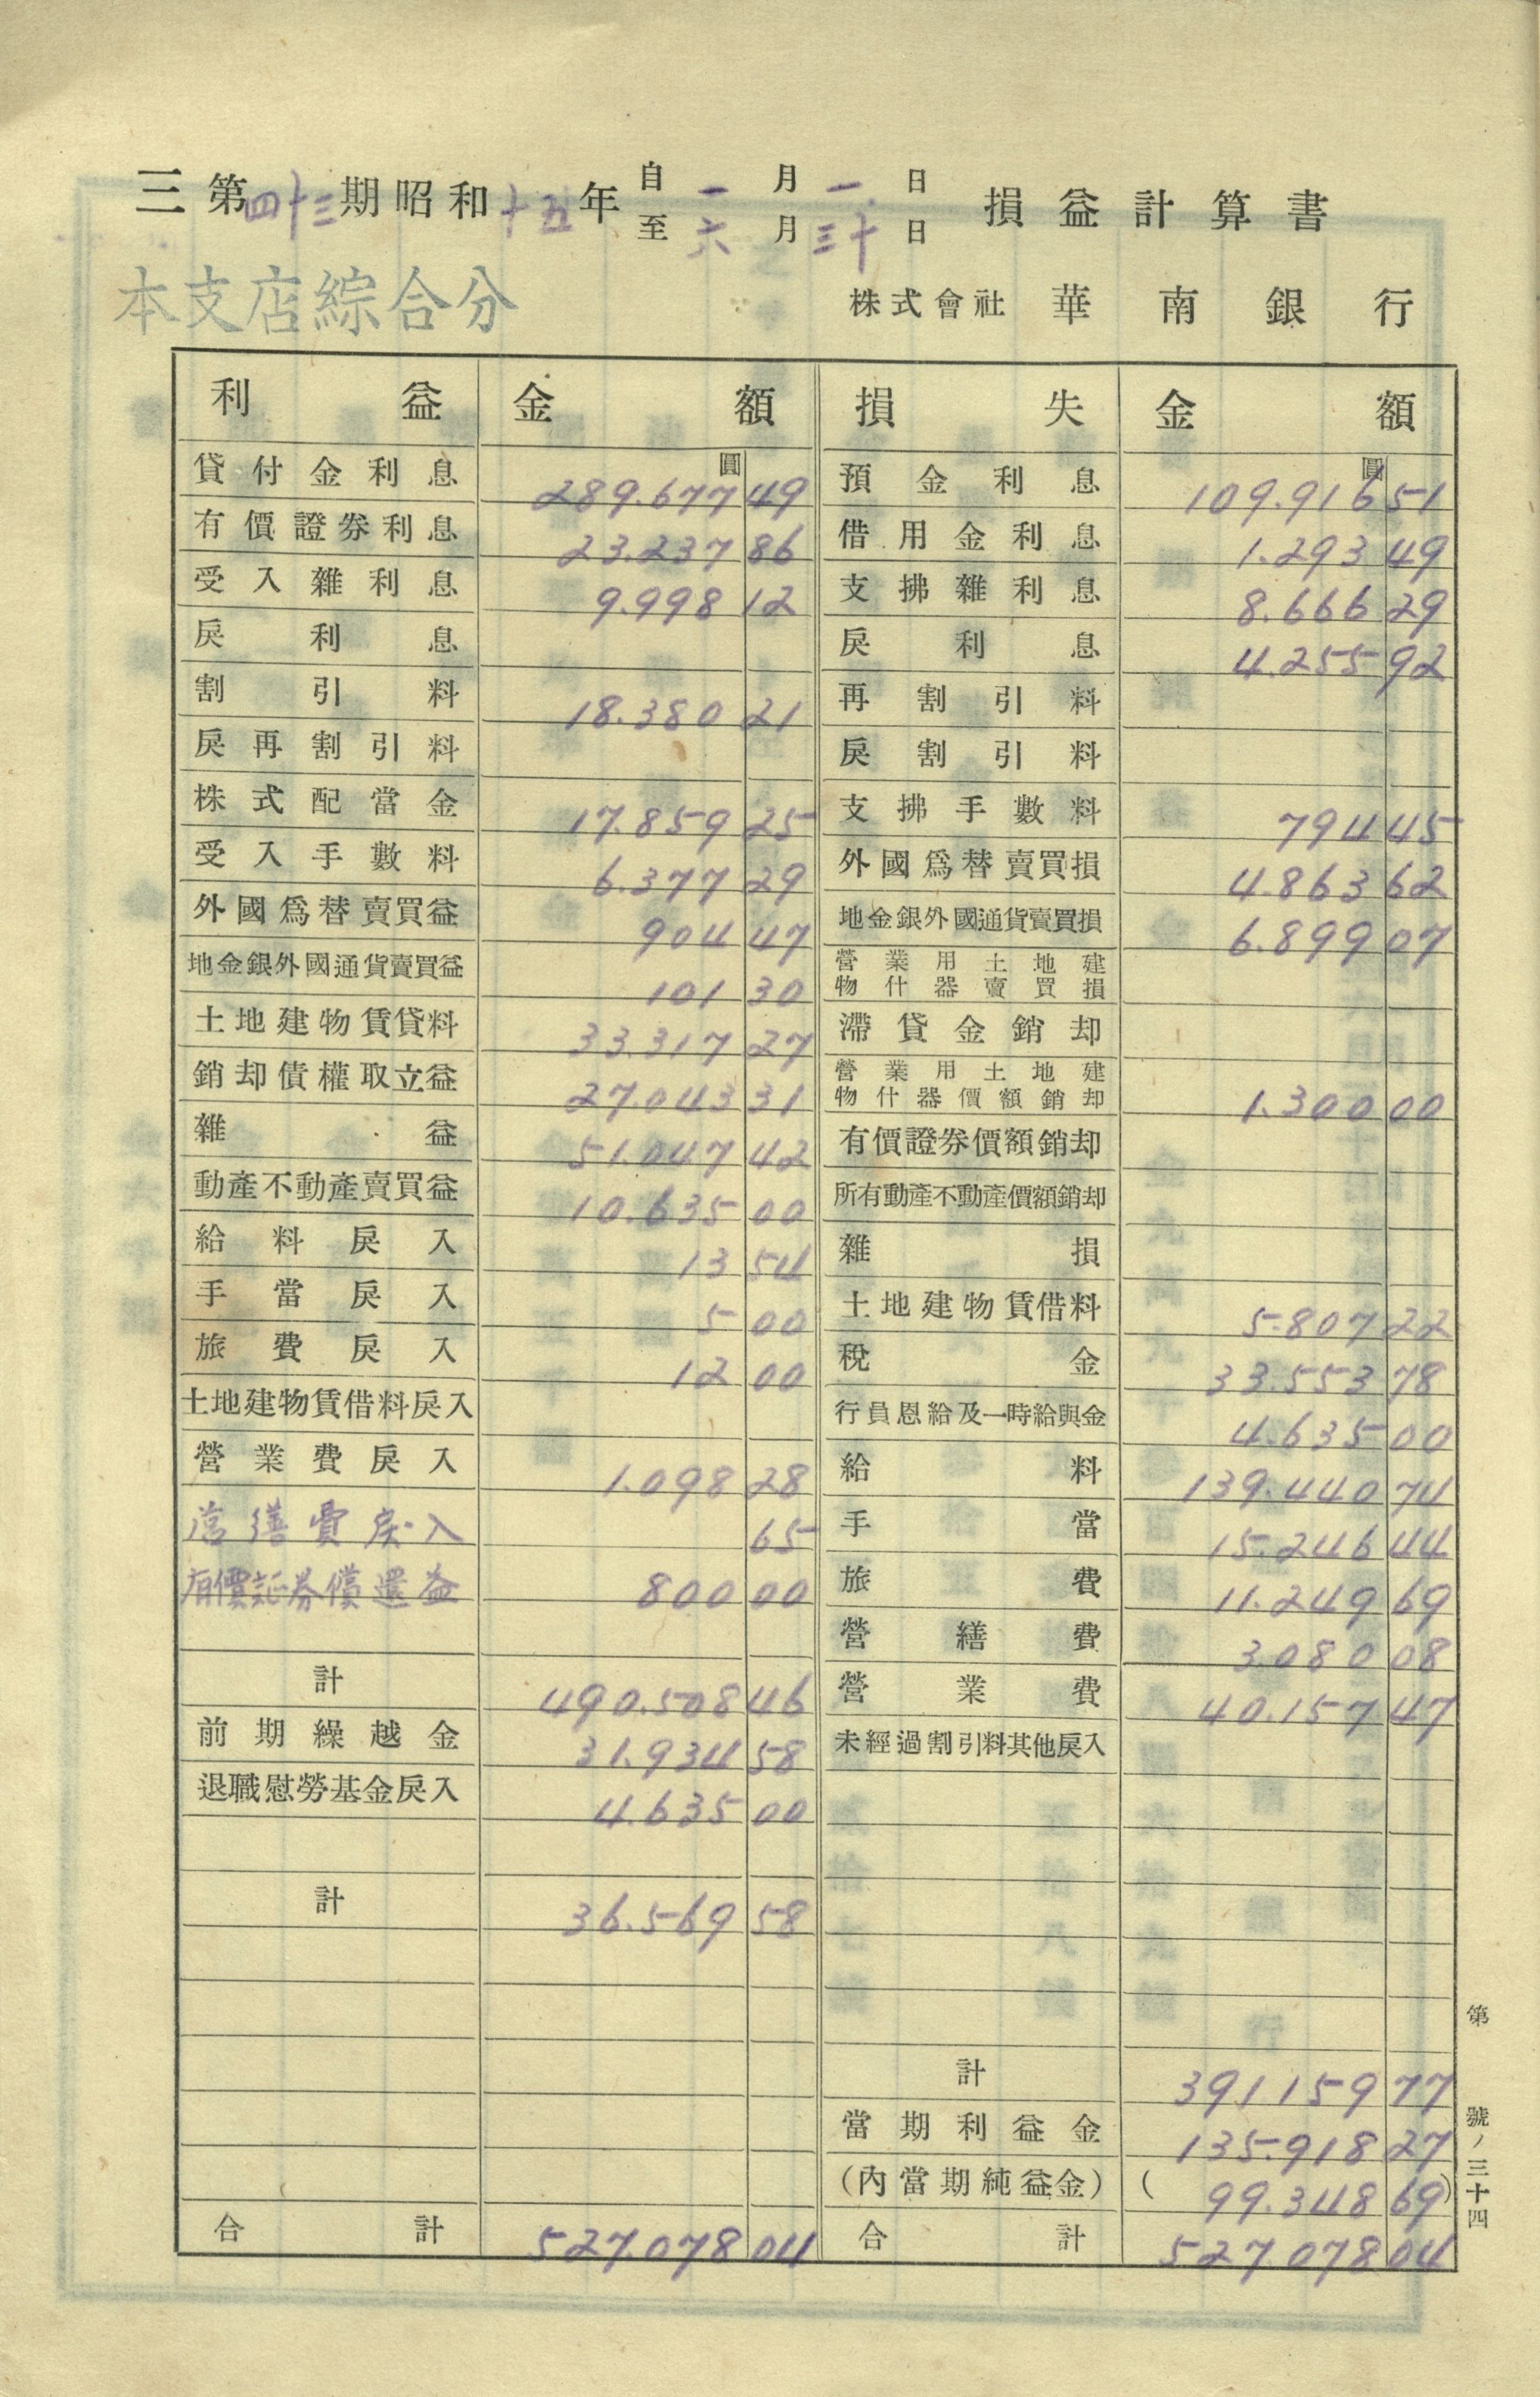 三 第四十三期昭和十五年 自一月一日 至六月三十日 損益計算書
本支店綜合分
株式會社 華南銀行
利益 金額 損失 金額
圓 圓
貸付金利息 289.677 49 預金利息 109.916 51
有價證券利息 23.237 86 借用金利息 1.293 49
受入雜利息 9.998 12 支拂雜利息 8.666 29
戾利息 戾利息 4.255 92
割引料 18.380 21 再割引料
戾再割引料 戾割引料
株式配當金 17.859 25 支拂手數料 794 45
受入手數料 6.377 29 外國爲替賣買損 4.863 62
外國爲替賣買益 904 47 地金銀外國通貨賣買損 6.899 07
地金銀外國通貨賣買益 101 30 營業用土地建物什器賣買損
土地建物賃貸料 33.317 27 滯貸金銷却
銷却債權取立益 27.043 31 營業用土地建物什器價額銷却 1.300 00
雜益 51.047 42 有價證券價額銷却
動產不動產賣買益 10.635 00 所有動產不動產價額銷却
給料戾入 13 54 雜損
手當戾入 5 00 土地建物賃借料 5.807 22
旅費戾入 12 00 稅金 33.553 78
土地建物賃借料戾入 行員恩給及一時給與金 4.635 00
營業費戾入 1.098 28 給料 139.440 74
営繕費戾入 65 手當 15.246 44
有價証券償還益 800 00 旅費 11.249 69
營繕費 3.080 08
計 490.508 46 營業費 40.157 47
前期繰越金 31.934 58 未經過割引料其他戾入
退職慰勞基金戾入 4.635 00
計 36.569 58
計 391159 77
當期利益金 135.918 27
(內當期純益金) ( 99.348 69)
合計 527.078 04 合計 527 078 04
第 號ノ三十四